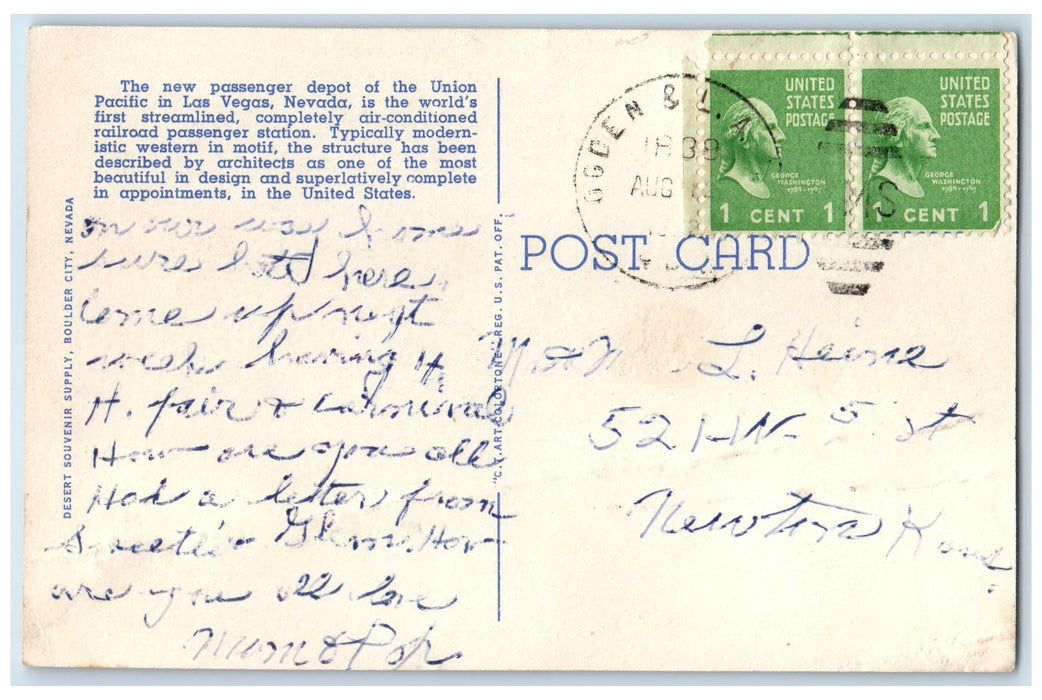 The new passenger depot of the Union
Pacific in Las Vegas, Nevada, is the world's
first streamlined, completely air-conditioned
railroad passenger station. Typically modern-
istic western in motif, the structure has been
described by architects as one of the most
beautiful in design and superlatively complete
in appointments, in the United States.
on our way home
sure hot here.
come up next
week having H
H. fair & Carnival
How are you all
Had a letter from
Sweetie & Glenn. How
are you all love
Mum & Pop
DESERT SOUVENIR SUPPLY, BOULDER CITY, NEVADA
"C.T. ART-COLORTONE" REG. U.S. PAT. OFF.
OGDEN & L. A.
AUG
UNITED
STATES
POSTAGE
GEORGE
WASHINGTON
1789-1797
1 CENT 1
UNITED
STATES
POSTAGE
GEORGE
WASHINGTON
1789-1797
1 CENT 1
POST CARD
L. Heine
521 W. 5 St
Newton Kans.